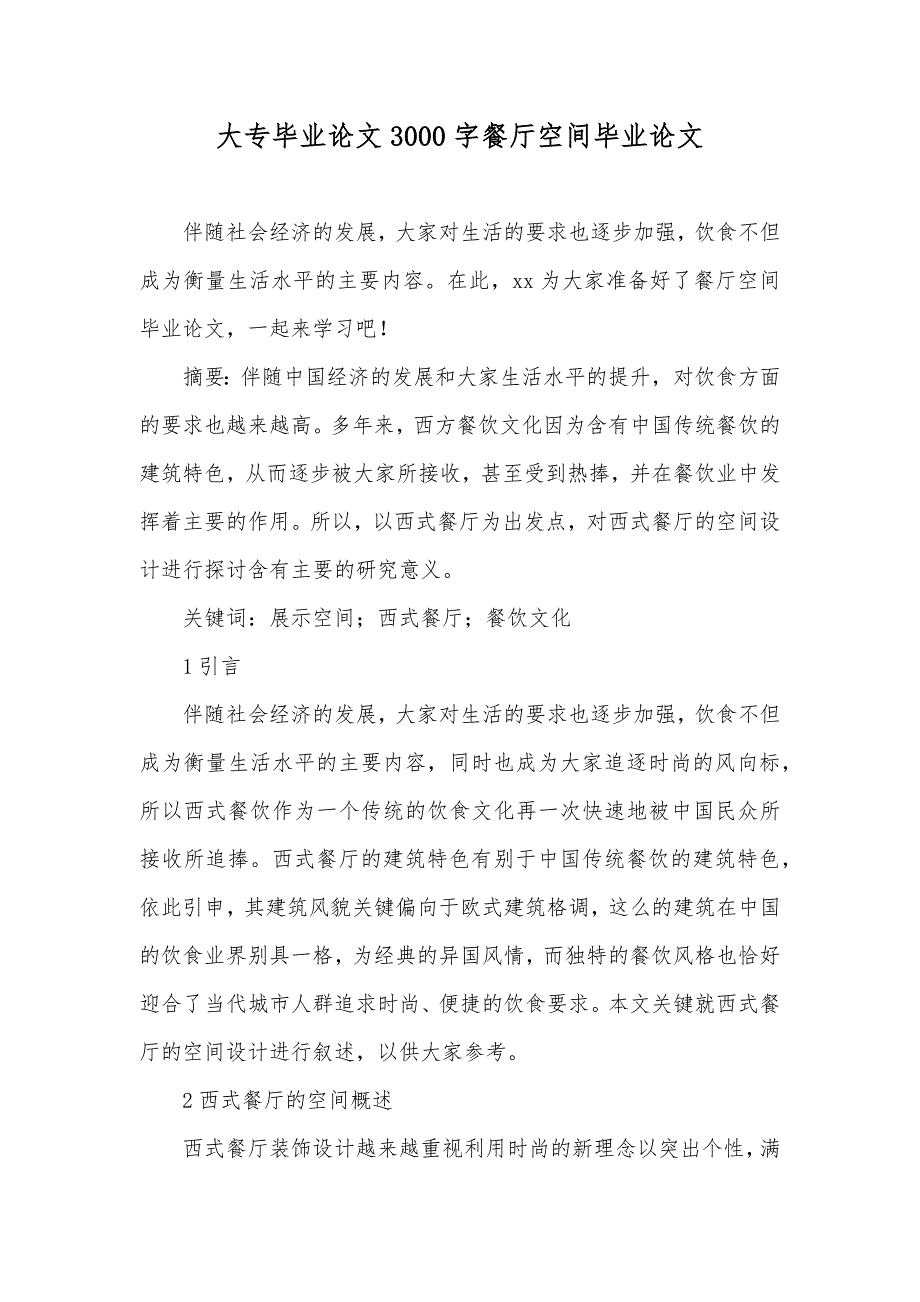 大专毕业论文 3000 字餐厅空间毕业论文
伴随社会经济的发展，大家对生活的要求也逐步加强，饮食不但
成为衡量生活水平的主要内容。在此，xx 为大家准备好了餐厅空间
毕业论文，一起来学习吧！
摘要：伴随中国经济的发展和大家生活水平的提升，对饮食方面
的要求也越来越高。多年来，西方餐饮文化因为含有中国传统餐饮的
建筑特色，从而逐步被大家所接收，甚至受到热捧，并在餐饮业中发
挥着主要的作用。所以，以西式餐厅为出发点，对西式餐厅的空间设
计进行探讨含有主要的研究意义。
关键词：展示空间；西式餐厅；餐饮文化
1 引言
伴随社会经济的发展，大家对生活的要求也逐步加强，饮食不但
成为衡量生活水平的主要内容，同时也成为大家追逐时尚的风向标，
所以西式餐饮作为一个传统的饮食文化再一次快速地被中国民众所
接收所追捧。西式餐厅的建筑特色有别于中国传统餐饮的建筑特色，
依此引申，其建筑风貌关键偏向于欧式建筑格调，这么的建筑在中国
的饮食业界别具一格，为经典的异国风情，而独特的餐饮风格也恰好
迎合了当代城市人群追求时尚、便捷的饮食要求。本文关键就西式餐
厅的空间设计进行叙述，以供大家参考。
2 西式餐厅的空间概述
西式餐厅装饰设计越来越重视利用时尚的新理念以突出个性，满